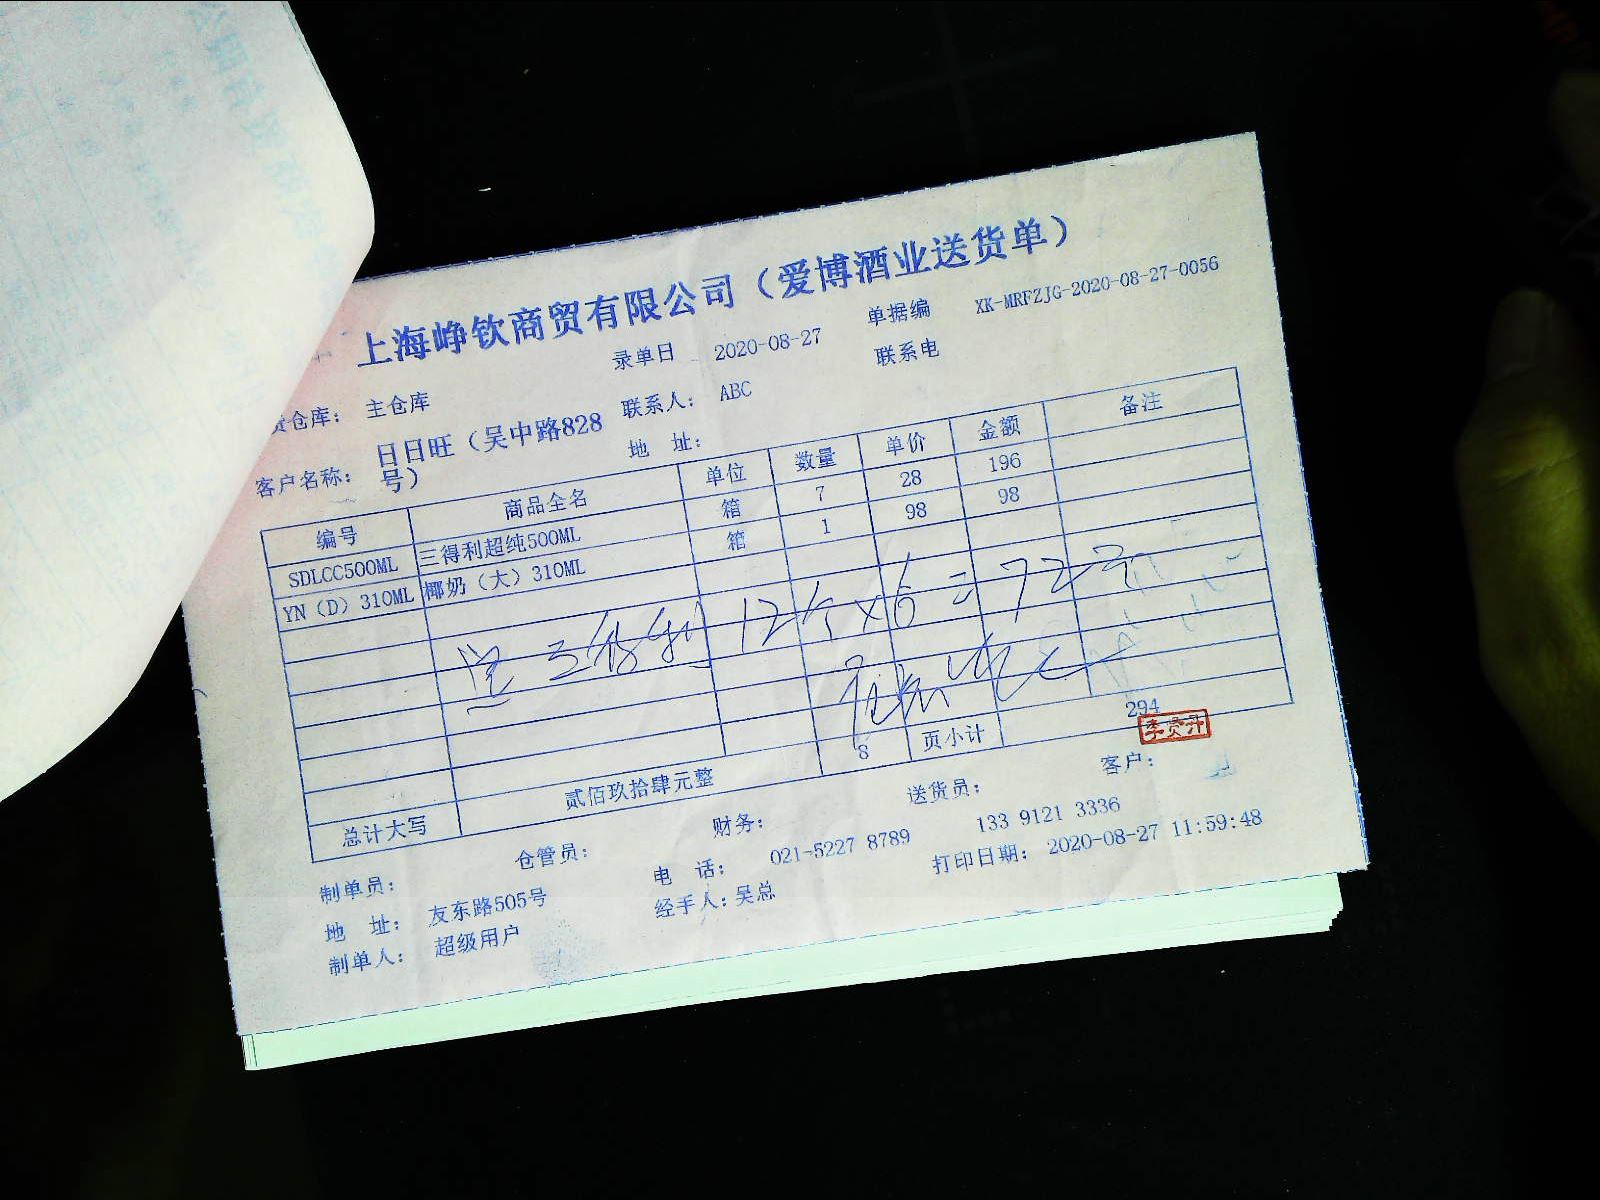 上海峥钦商贸有限公司（爱博酒业送货单）
货仓库： 主仓库 录单日 2020-08-27 单据编 XK-MRFZJG-2020-08-27-0056
客户名称： 日日旺（吴中路828号） 联系人： ABC 联系电
地 址：
编号 商品全名 单位 数量 单价 金额 备注
SDLCC500ML 三得利超纯500ML 箱 7 28 196
YN（D）310ML 椰奶（大）310ML 箱 1 98 98
三得利 12个×6=72元
8 页小计 294
总计大写 贰佰玖拾肆元整
李贤升
制单员： 仓管员： 财务： 送货员： 客户：
地 址： 友东路505号 电 话： 021-5227 8789 133 9121 3336
制单人： 超级用户 经手人：吴总 打印日期： 2020-08-27 11:59:48